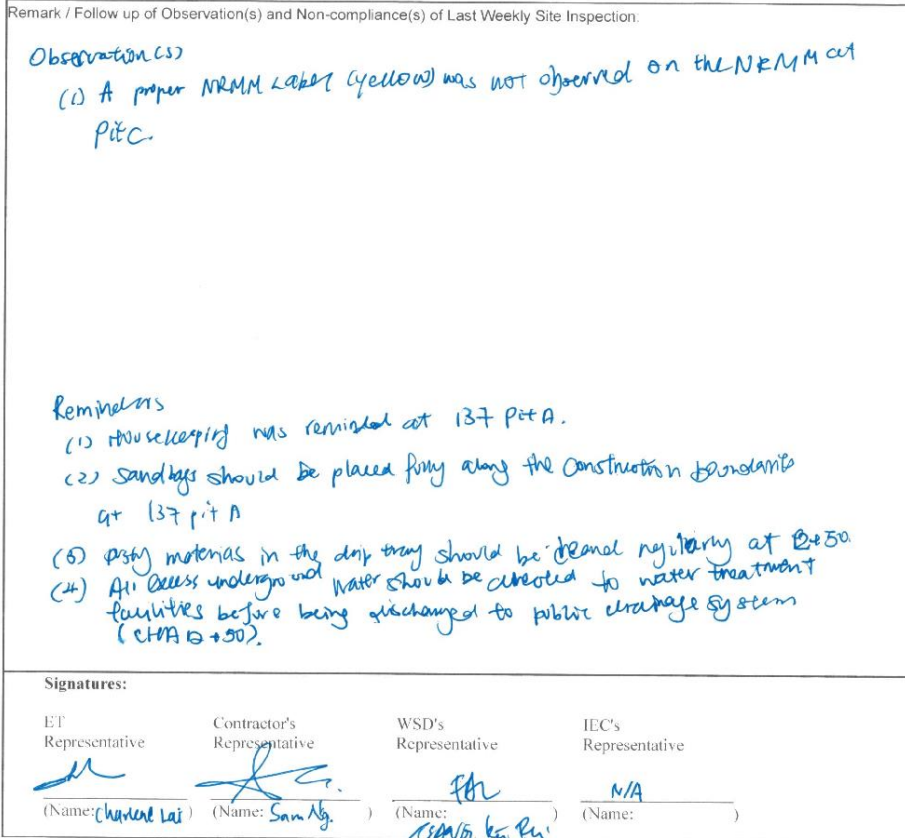 Remark / Follow up of Observation(s) and Non-compliance(s) of Last Weekly Site Inspection:
Observation(s)
(1) A proper NRMM Label (yellow) was not observed on the NRMM at
Pit C.
Reminders
(1) Housekeeping was reminded at 137 Pit A.
(2) Sandbags should be placed fully along the construction boundaries
at 137 pit A
materials in the drip tray should be cleaned regularly at +50.
(4) All excess underground water should be directed to water treatment
facilities before being discharged to public drainage system
+50).
Signatures:
ET Contractor's WSD's IEC's
Representative Representative Representative Representative
N/A
(Name: Charlene Lai ) (Name: Sam Ng. ) (Name: ) (Name: )